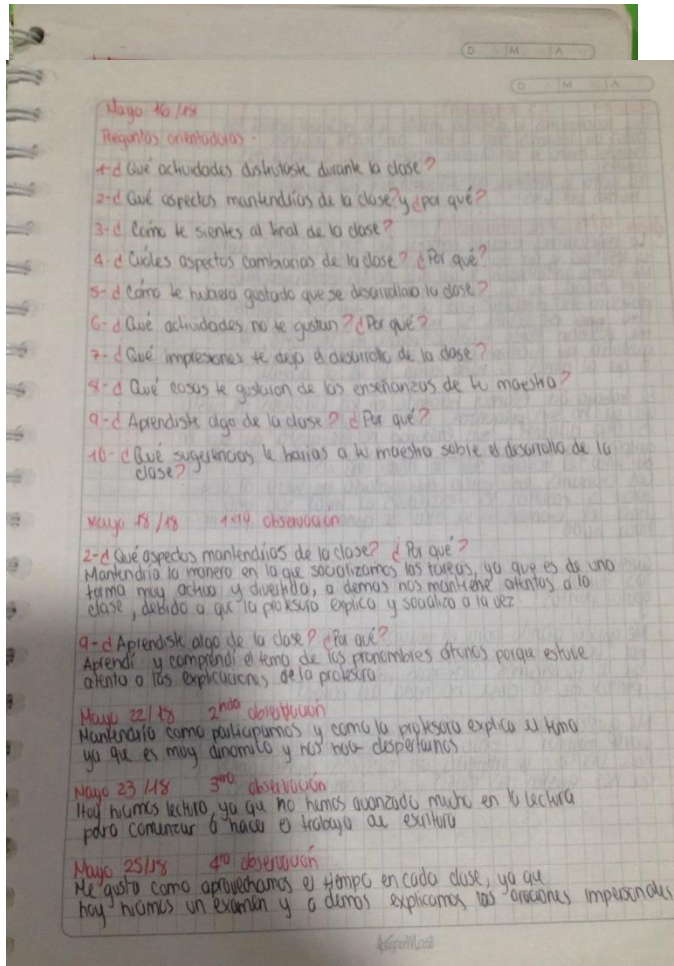 D M A
D M A
Mayo 16/18
Preguntas orientadoras.
1-¿Qué actividades disfrutaste durante la clase?
2-¿Qué aspectos mantendrías de la clase? y ¿por qué?
3-¿Cómo te sientes al final de la clase?
4-¿Cuáles aspectos cambiarías de la clase? ¿Por qué?
5-¿Cómo te hubiera gustado que se desarrollara la clase?
6-¿Qué actividades no te gustan? ¿Por qué?
7-¿Qué impresiones te dejo el desarrollo de la clase?
8-¿Qué cosas te gustaron de las enseñanzas de tu maestra?
9-¿Aprendiste algo de la clase? ¿Por qué?
10-¿Qué sugerencias le harías a tu maestra sobre el desarrollo de la
clase?
Mayo 18/18 observación
2-¿Qué aspectos mantendrías de la clase? ¿Por qué?
Mantendría la manera en la que socializamos las tareas, ya que es de una
forma muy activa y divertida, a demas nos mantiene atentos a la
clase, debido a que la profesora explica y socializa a la vez
9-¿Aprendiste algo de la clase? ¿Por qué?
Aprendí y comprendí el tema de los pronombres átonos porque estuve
atenta a las explicaciones de la profesora
Mayo 22/18 2nda observación
Mantendría como participamos y como la profesora explica el tema
ya que es muy dinamico y nos despertamos
Mayo 23/18 3ra observación
Hoy hicimos lectura, ya que no hemos avanzado mucho en la lectura
para comenzar a hacer el trabajo de escritura
Mayo 25/18 4ta observación
Me gusta como aprovechamos el tiempo en cada clase, ya que
hoy hicimos un examen y a demas explicamos las oraciones impersonales